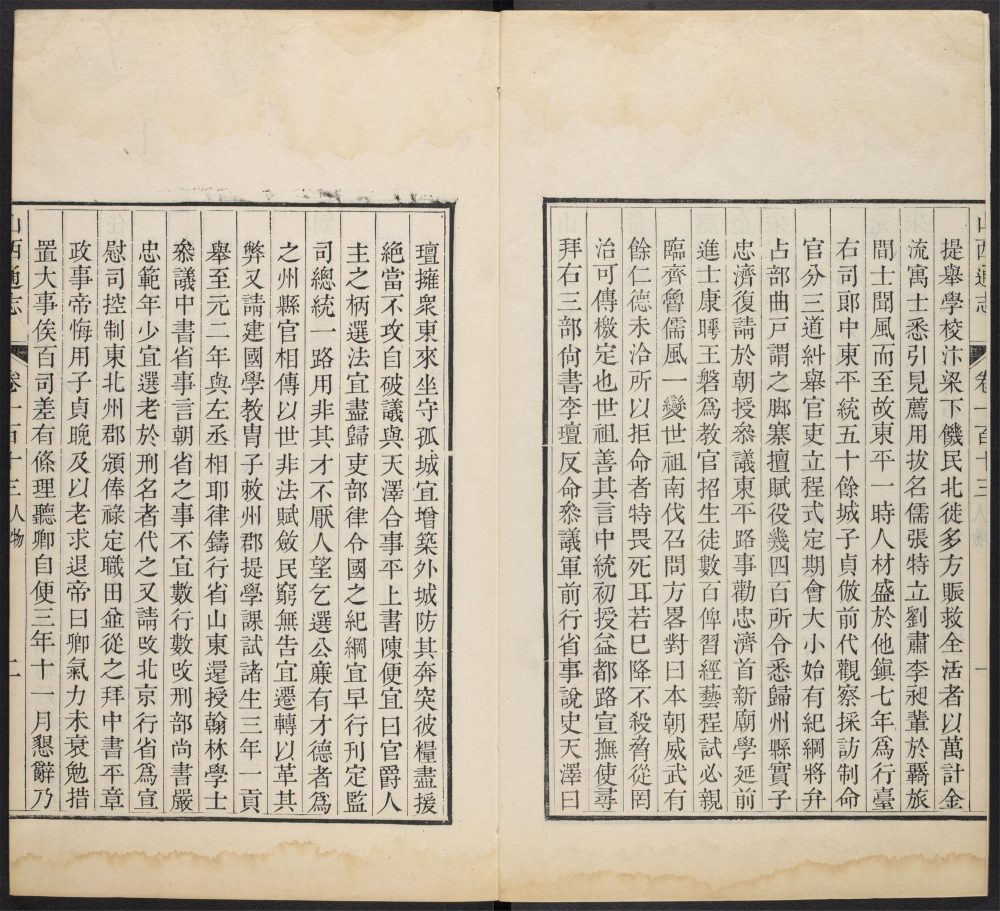 山西通志 卷一百十三 人物 一
提舉學校汴梁下饑民北徙多方賑救全活者以萬計金
流寓士悉引見薦用拔名儒張特立劉肅李昶輩於羇旅
間士聞風而至故東平一時人材盛於他鎮七年爲行臺
右司郎中東平統五十餘城子貞倣前代觀察採訪制命
官分三道糾舉官吏立程式定期會大小始有紀綱將弁
占部曲戸謂之脚寨擅賦役幾四百所令悉歸州縣實子
忠濟復請於朝授叅議東平路事勸忠濟首新廟學延前
進士康曄王磐爲教官招生徒數百俾習經藝程試必親
臨齊魯儒風一變世祖南伐召問方畧對曰本朝威武有
餘仁德未洽所以拒命者特畏死耳若巳降不殺脅從罔
治可傳檄定也世祖善其言中統初授益都路宣撫使尋
拜右三部尙書李璮反命叅議軍前行省事說史天澤曰
璮擁衆東來坐守孤城宜增築外城防其奔突彼糧盡援
絕當不攻自破議與天澤合事平上書陳便宜曰官爵人
主之柄選法宜盡歸吏部律令國之紀綱宜早行刊定監
司總統一路用非其才不厭人望乞選公廉有才德者爲
之州縣官相傳以世非法賦斂民窮無告宜遷轉以革其
弊又請建國學教胄子敕州郡提學課試諸生三年一貢
舉至元二年與左丞相耶律鑄行省山東還授翰林學士
叅議中書省事言朝省之事不宜數行數改刑部尚書嚴
忠範年少宜選老於刑名者代之又請改北京行省爲宣
慰司控制東北州郡頒俸祿定職田竝從之拜中書平章
政事帝悔用子貞晚及以老求退帝曰卿氣力未衰勉措
置大事俟百司差有條理聽卿自便三年十一月懇辭乃
山西通志 卷一百十三 人物 二